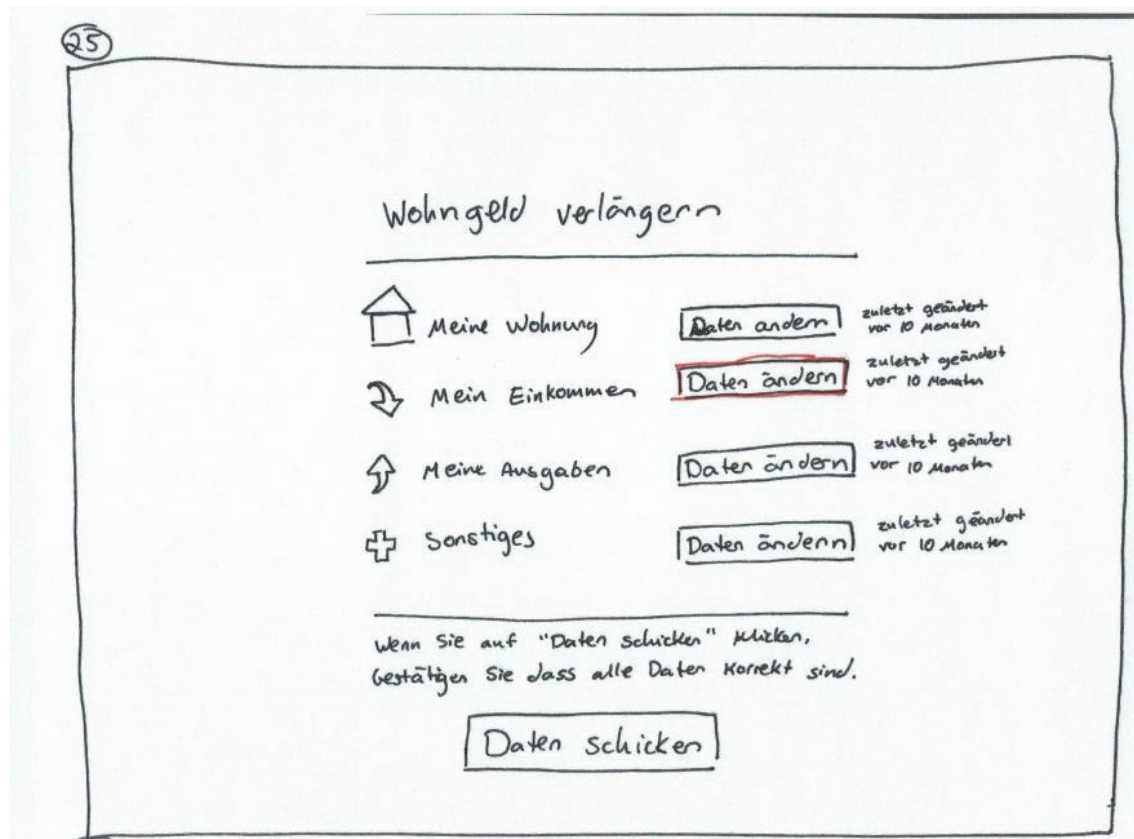 25
Wohngeld verlängern
Meine Wohnung
Daten andern
zuletzt geändert
vor 10 Monaten
Mein Einkommen
Daten ändern
zuletzt geändert
vor 10 Monaten
Meine Ausgaben
Daten ändern
zuletzt geändert
vor 10 Monaten
Sonstiges
Daten ändern
zuletzt geändert
vor 10 Monaten
Wenn Sie auf "Daten schicken" klicken,
bestätigen Sie dass alle Daten korrekt sind.
Daten schicken